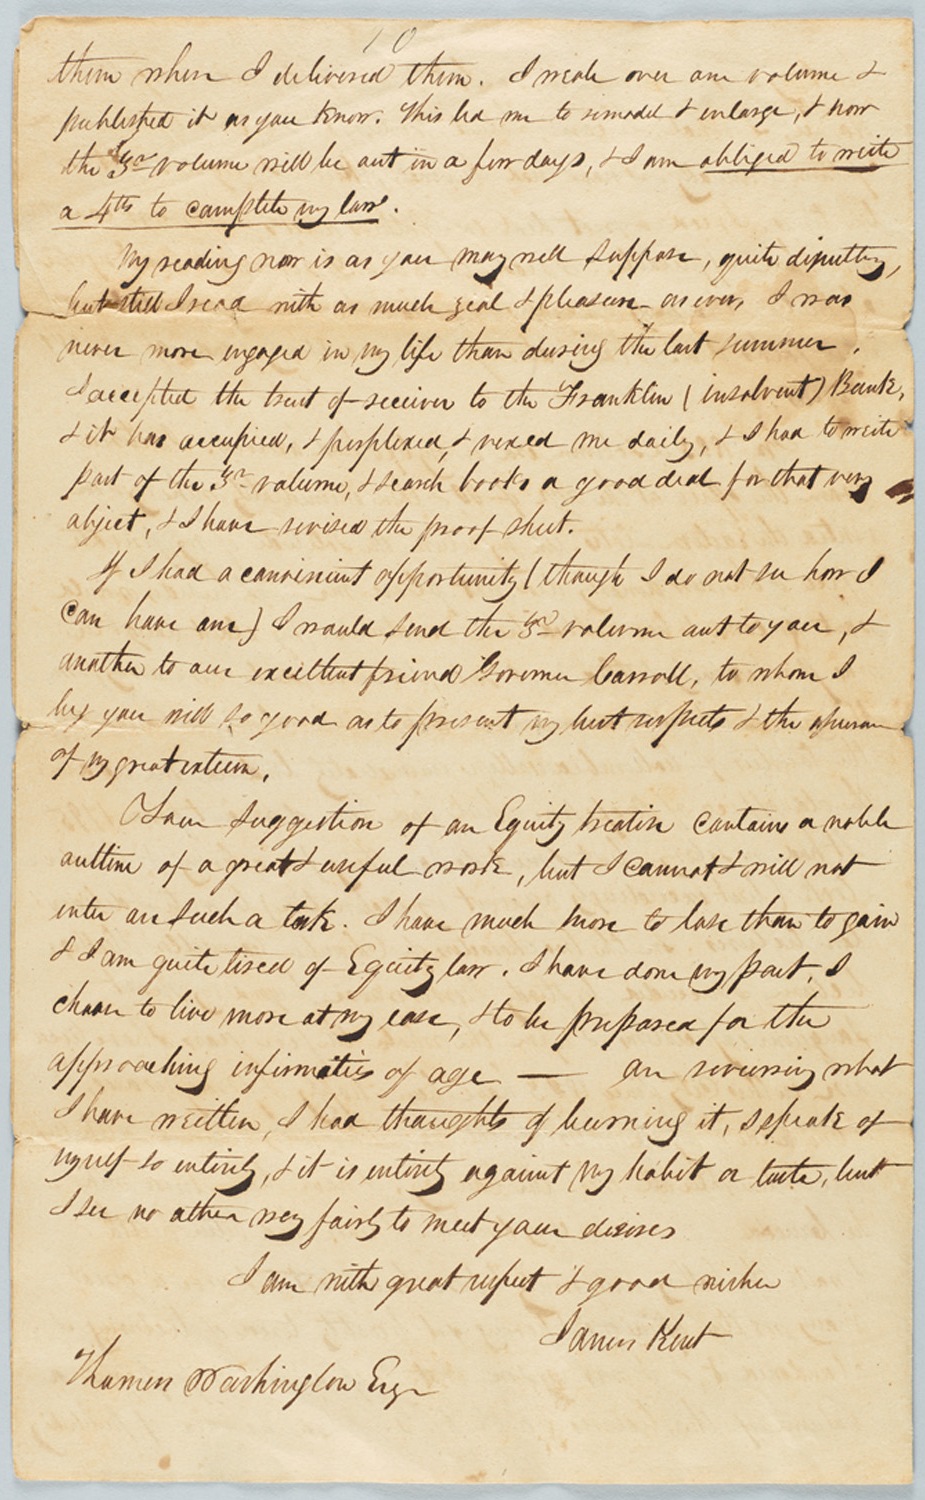 10
them when I delivered them. I wrote over one volume &
published it as you know. This led me to remodel & enlarge, & now
the 3rd volume will be out in a few days, & I am obliged to write
a 4th to complete my law.
My reading now is as you may well suppose, quite desultory,
but still I read with as much zeal & pleasure as ever, I was
never more engaged in my life than during the last summer.
I accepted the trust of receiver to the Franklin (insolvent) Bank,
& it has occupied, & perplexed, & vexed me daily, & I had to write
part of the 3rd volume, & search books a good deal for that very
object, & I have revised the proof sheet.
If I had a convenient opportunity (though I do not see how I
can have one) I would send the 3rd volume out to you, &
another to our excellent friend Governor Carroll, to whom I
beg you will so good as to present my best respects & the
of my great esteem.
Your suggestion of an Equity treatise contains a noble
outline of a great & useful work, but I cannot & will not
enter on such a task. I have much more to lose than to gain
& I am quite tired of Equity law. I have done my part, I
choose to live more at my ease, & to be prepared for the
approaching infirmities of age — On reviewing what
I have written, I had thoughts of burning it, I speak of
myself so entirely, & it is entirely against my habit or taste, but
I see no other way fairly to meet your desires
I am with great respect & good wishes
James Kent
Thomas Washington Esqr